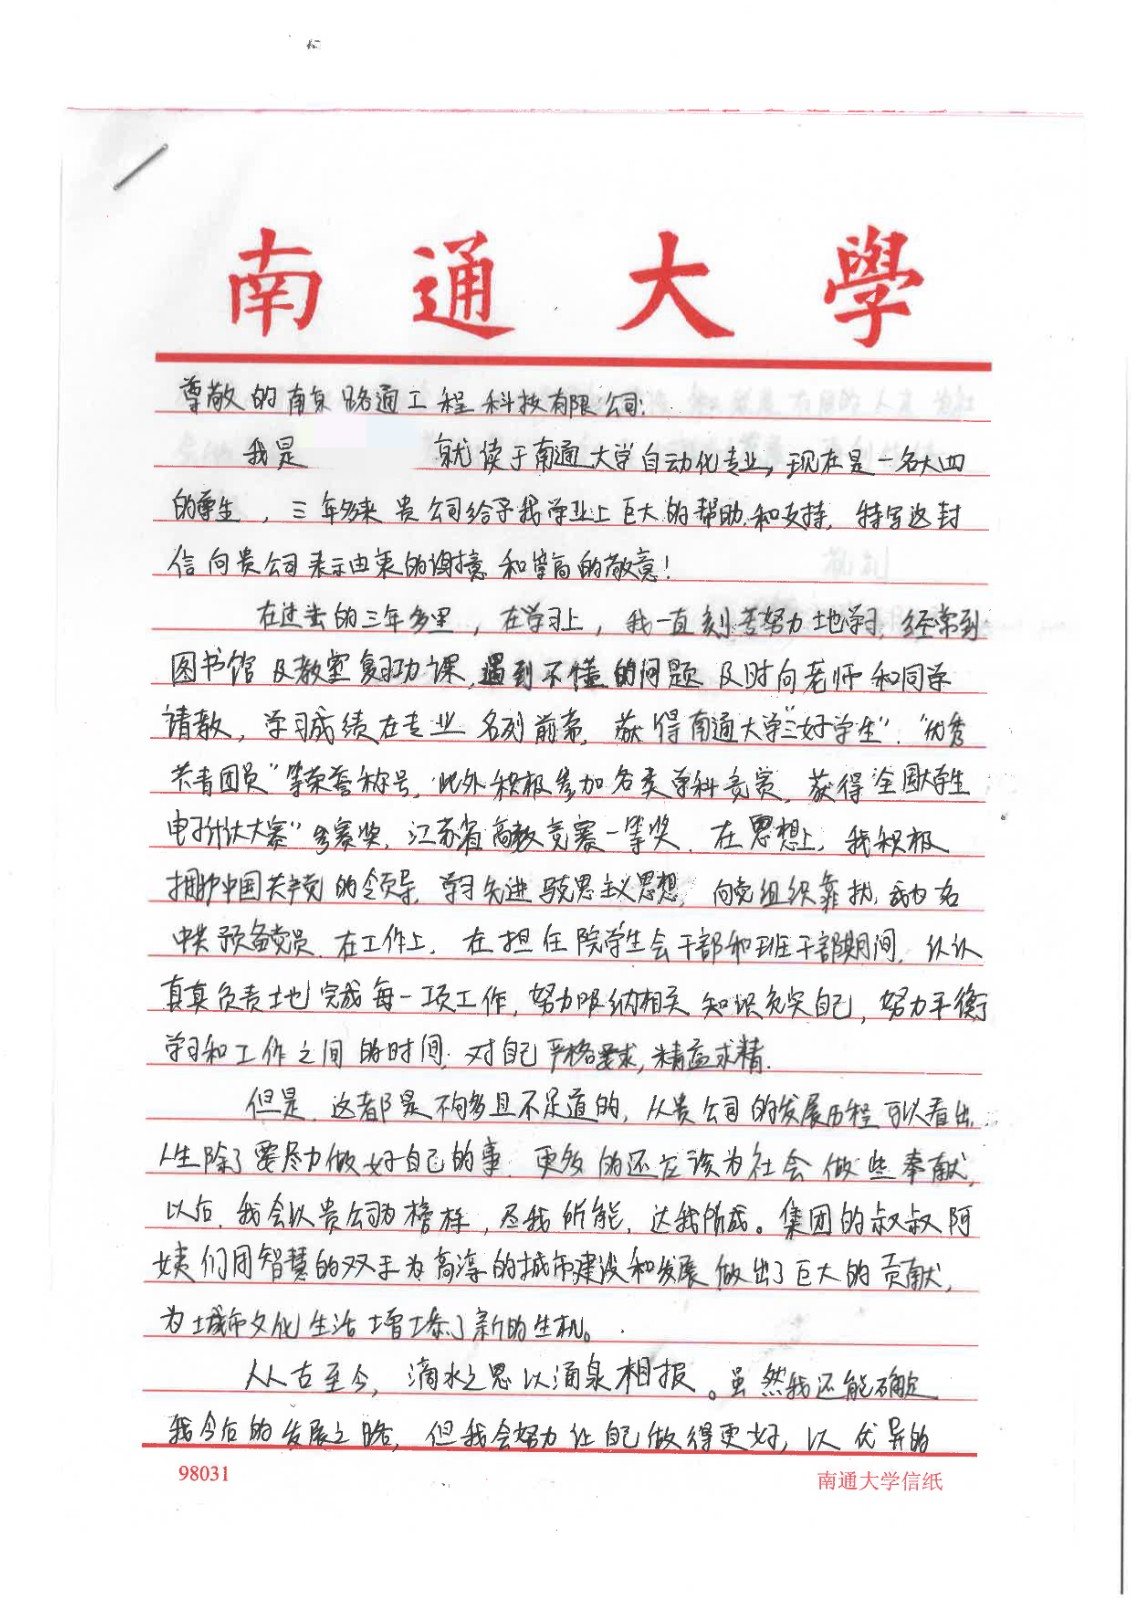 南通大學
尊敬的南京路通工程科技有限公司:
我是 就读于南通大学自动化专业,现在是一名大四
的学生,三年多来贵公司给予我学业上巨大的帮助和支持,特写这封
信向贵公司表示由衷的谢意和崇高的敬意!
在过去的三年多里,在学习上,我一直刻苦努力地学习,经常到
图书馆及教室复习功课,遇到不懂的问题及时向老师和同学
请教,学习成绩在专业名列前茅,获得南通大学“三好学生”.“优秀
共青团员”等荣誉称号,此外积极参加各类学科竞赛,获得“全国大学生
电子设计大赛”参赛奖,江苏省高数竞赛一等奖.在思想上,我积极
拥护中国共产党的领导,学习先进马克思主义思想,向党组织靠拢,成为名
中共预备党员.在工作上,在担任院学生会干部和班干部期间,认认
真真负责地完成每一项工作,努力吸纳相关知识充实自己,努力平衡
学习和工作之间的时间.对自己严格要求,精益求精.
但是,这都是不够多且不足道的,从贵公司的发展历程可以看出,
人生除了要尽力做好自己的事.更多的还应该为社会做些奉献,
以后,我会以贵公司为榜样,尽我所能,达我所成。集团的叔叔阿
姨们用智慧的双手为高淳的城市建设和发展做出了巨大的贡献,
为城市文化生活增添了新的生机。
从古至今,滴水之恩以涌泉相报。虽然我还能确定
我今后的发展之路,但我会努力让自己做得更好,以优异的
98031
南通大学信纸